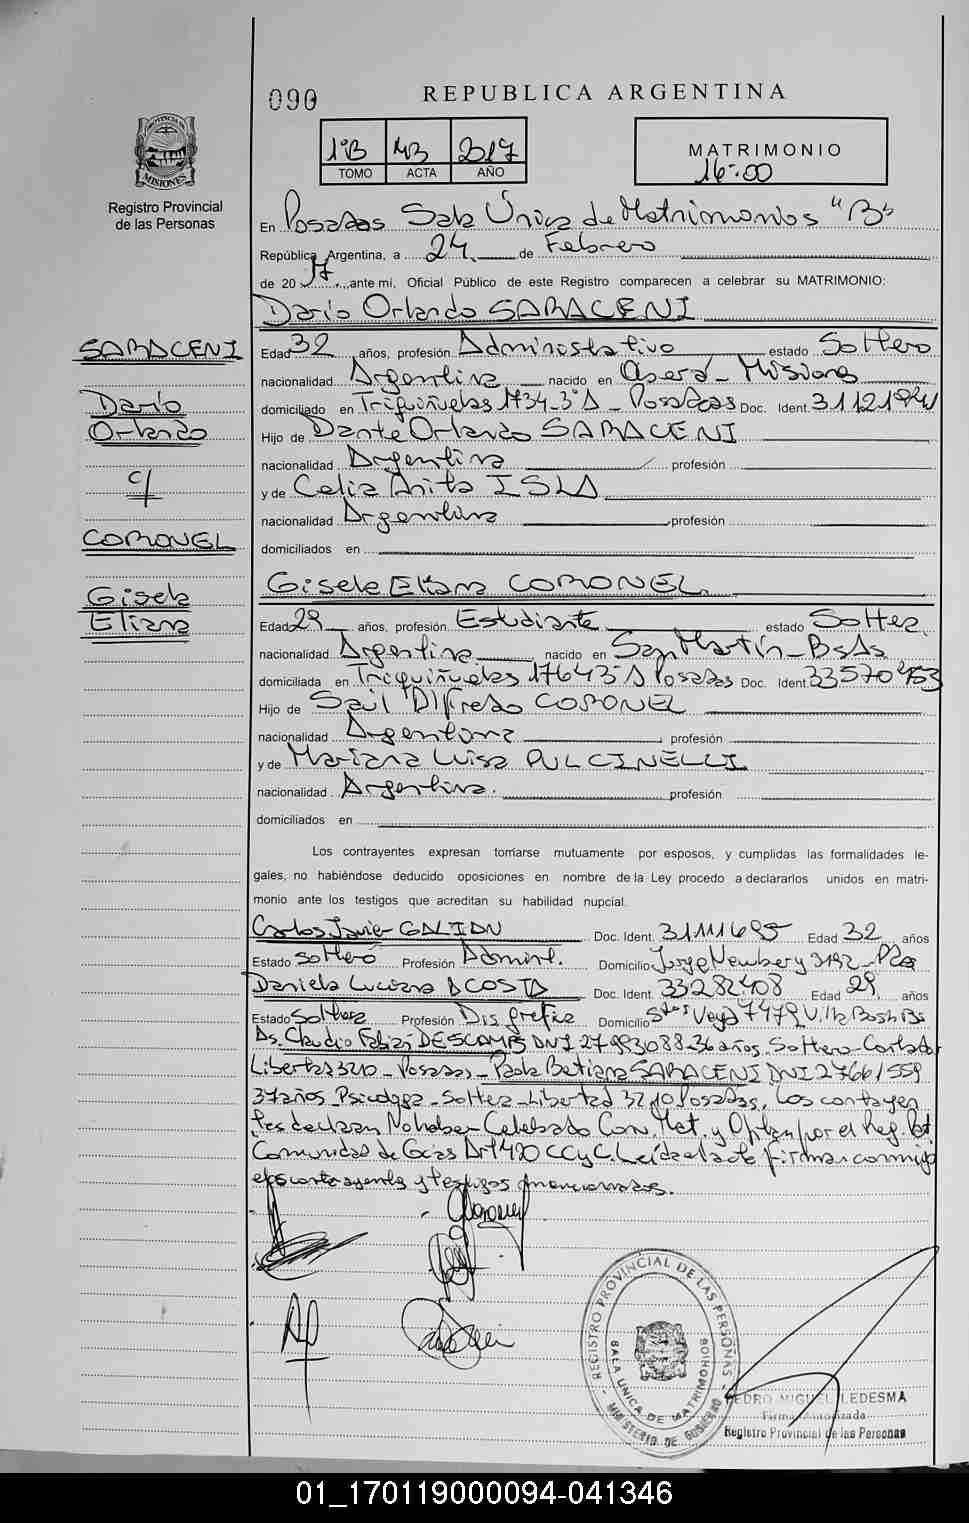 090
REPUBLICA ARGENTINA
PROVINCIA DE MISIONES
Registro Provincial
de las Personas
1°B 43 2017
TOMO ACTA AÑO
MATRIMONIO
16:00
En Posadas Sala Única de Matrimonios "B"
República Argentina, a 24 de Febrero
de 2017, ante mi, Oficial Público de este Registro comparecen a celebrar su MATRIMONIO:
Dario Orlando SARACENI
SARACENI
Dario
Orlando
c/
CORONEL
Gisela
Eliana
Edad 32 años, profesión Administrativo estado Soltero
nacionalidad Argentina nacido en Oberá - Misiones
domiciliado en Triquiñuelas 1734-3°A - Posadas Doc. Ident. 31121941
Hijo de Dante Orlando SARACENI
nacionalidad Argentina profesión
y de Celia Anita ISLA
nacionalidad Argentina profesión
domiciliados en
Gisela Eliana CORONEL
Edad 29 años, profesión Estudiante estado Soltera
nacionalidad Argentina nacido en San Martín - BsAs
domiciliada en Triquiñuelas 1764 3°A Posadas Doc. Ident. 33570453
Hijo de Saúl Alfredo CORONEL
nacionalidad Argentina profesión
y de Mariana Luisa PULCINELLI
nacionalidad Argentina profesión
domiciliados en
Los contrayentes expresan tomarse mutuamente por esposos, y cumplidas las formalidades le-
gales, no habiéndose deducido oposiciones en nombre de la Ley procedo a declararlos unidos en matri-
monio ante los testigos que acreditan su habilidad nupcial.
Carlos Javier GALIAN Doc. Ident. 31111695 Edad 32 años
Estado soltero Profesión Admint. Domicilio Jorge Newbery 3192 - Pdas
Daniela Luciana ACOSTA Doc. Ident. 33282408 Edad 29 años
Estado Soltera Profesión Dis grafica Domicilio Vega 7479 Villa Bosh Bs
As. Claudio Fabián DESCAMPS DNI 27993088 - 36 años - Soltero - Contador
Libertad 3210 - Posadas - Paola Betiana SARACENI DNI 27661559
37 años - Psicologa - Soltera - Libertad 3210 Posadas. Los contrayen
tes declaran No haber Celebrado Conv. Mat. y Optan por el Reg. Pat
Comunidad de Gcias Art 420 CCyC. Leída el acta firman conmigo
los contrayentes y testigos mencionados.
REGISTRO PROVINCIAL DE LAS PERSONAS
SALA UNICA DE MATRIMONIOS
MINISTERIO DE GOBIERNO
PEDRO MIGUEL LEDESMA
Firma Autorizada
Registro Provincial de las Personas
01_170119000094-041346